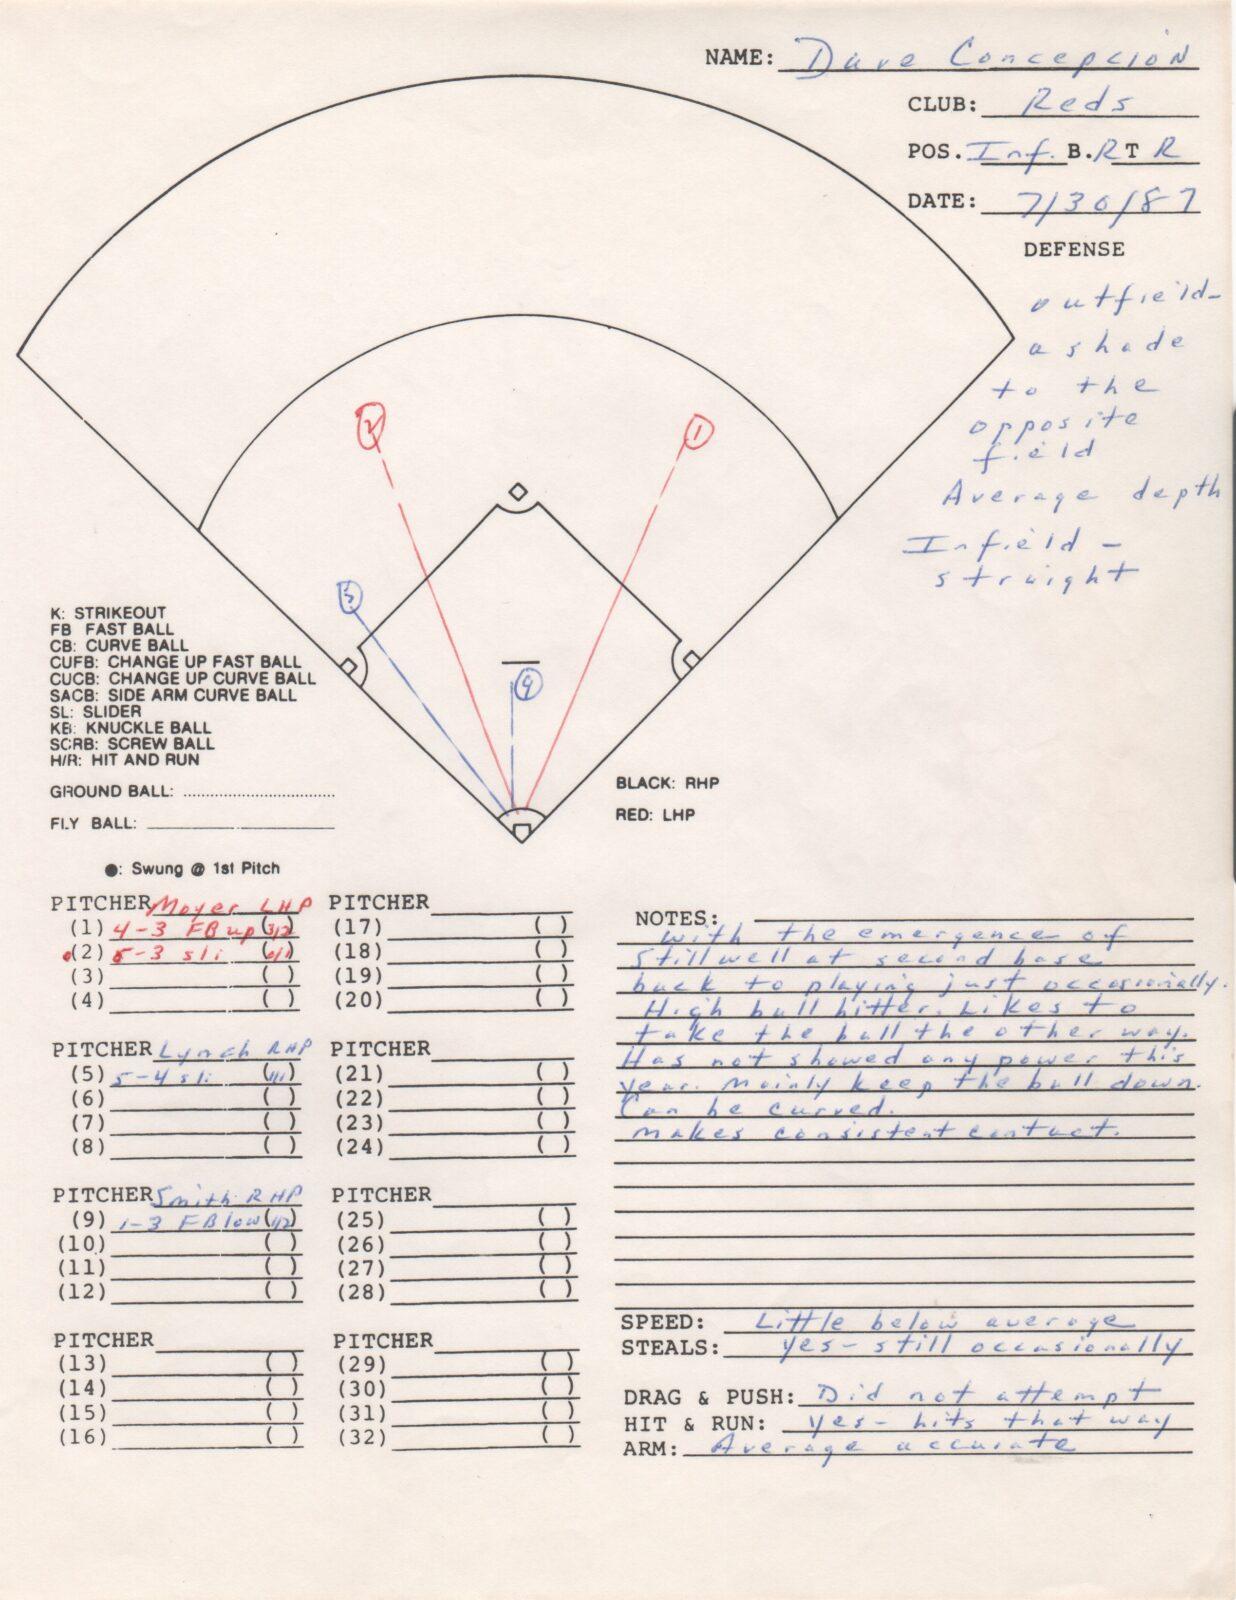 NAME: Dave Concepcion
CLUB: Reds
POS. Inf. B. R T R
DATE: 7/30/87
DEFENSE
outfield-
a shade
to the
opposite
field
Average depth
Infield -
straight
2
1
5
9
K: STRIKEOUT
FB FAST BALL
CB: CURVE BALL
CUFB: CHANGE UP FAST BALL
CUCB: CHANGE UP CURVE BALL
SACB: SIDE ARM CURVE BALL
SL: SLIDER
KB: KNUCKLE BALL
SCRB: SCREW BALL
H/R: HIT AND RUN
GROUND BALL:
FLY BALL:
BLACK: RHP
RED: LHP
●: Swung @ 1st Pitch
PITCHER Moyer LHP
(1) 4-3 FB up (3/2)
(2) 5-3 sli (0/1)
(3) ( )
(4) ( )
PITCHER Lynch RHP
(5) 5-4 sli (1/1)
(6) ( )
(7) ( )
(8) ( )
PITCHER Smith RHP
(9) 1-3 FB low (1/2)
(10) ( )
(11) ( )
(12) ( )
PITCHER
(13) ( )
(14) ( )
(15) ( )
(16) ( )
PITCHER
(17) ( )
(18) ( )
(19) ( )
(20) ( )
PITCHER
(21) ( )
(22) ( )
(23) ( )
(24) ( )
PITCHER
(25) ( )
(26) ( )
(27) ( )
(28) ( )
PITCHER
(29) ( )
(30) ( )
(31) ( )
(32) ( )
NOTES:
with the emergence of
Stillwell at second base
back to playing just occasionally.
High ball hitter. Likes to
take the ball the other way.
Has not showed any power this
year. Mainly keep the ball down.
Can be curved.
makes consistent contact.
SPEED: Little below average
STEALS: yes- still occasionally
DRAG & PUSH: Did not attempt
HIT & RUN: yes- hits that way
ARM: Average accurate